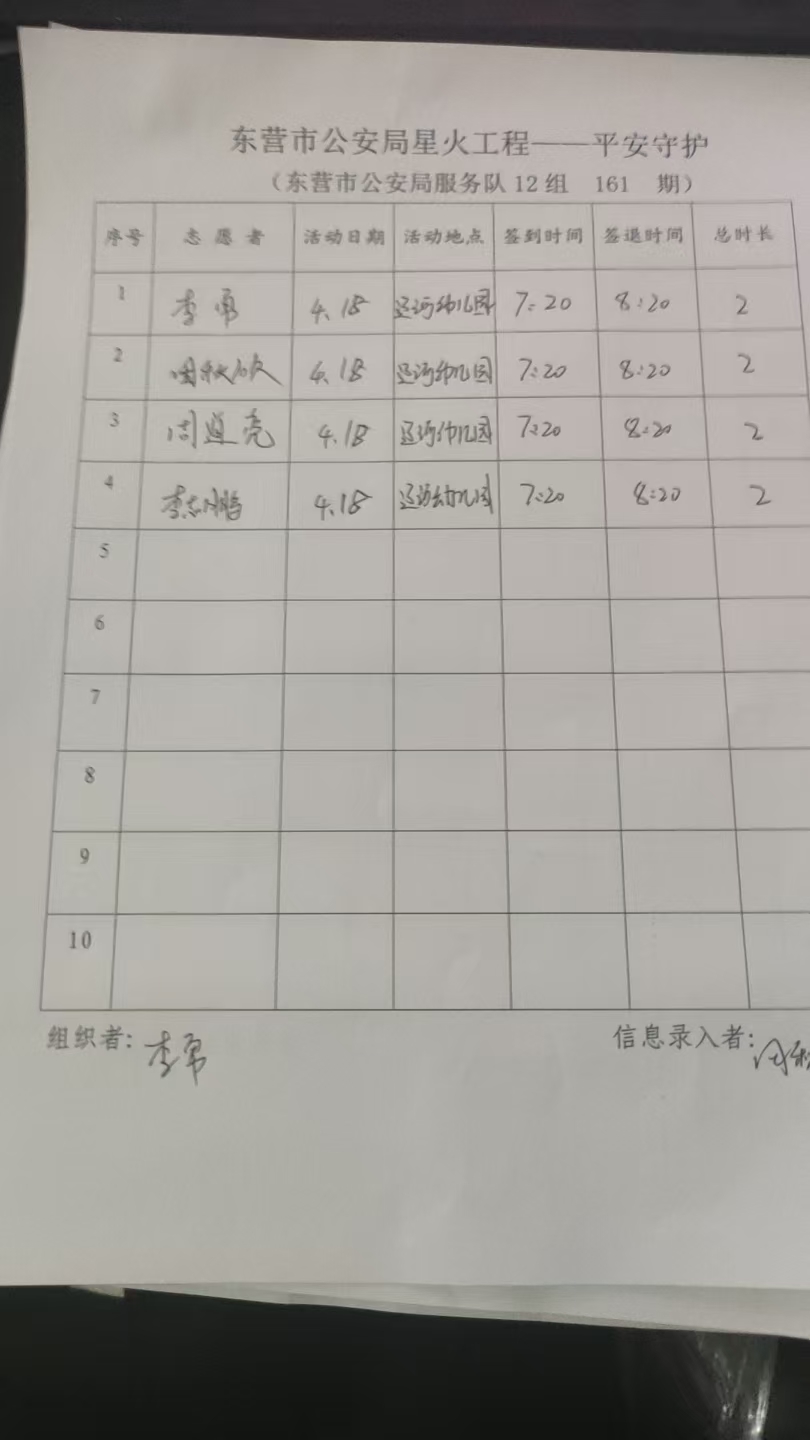 东营市公安局星火工程——平安守护
（东营市公安局服务队12组 161 期）
序号 志愿者 活动日期 活动地点 签到时间 签退时间 总时长
1 李勇 4.18 幼儿园 7:20 8:20 2
2 周秋欣 4.18 幼儿园 7:20 8:20 2
3 周道亮 4.18 幼儿园 7:20 8:20 2
4 李志鹏 4.18 幼儿园 7:20 8:20 2
5
6
7
8
9
10
组织者：李勇 信息录入者：周秋